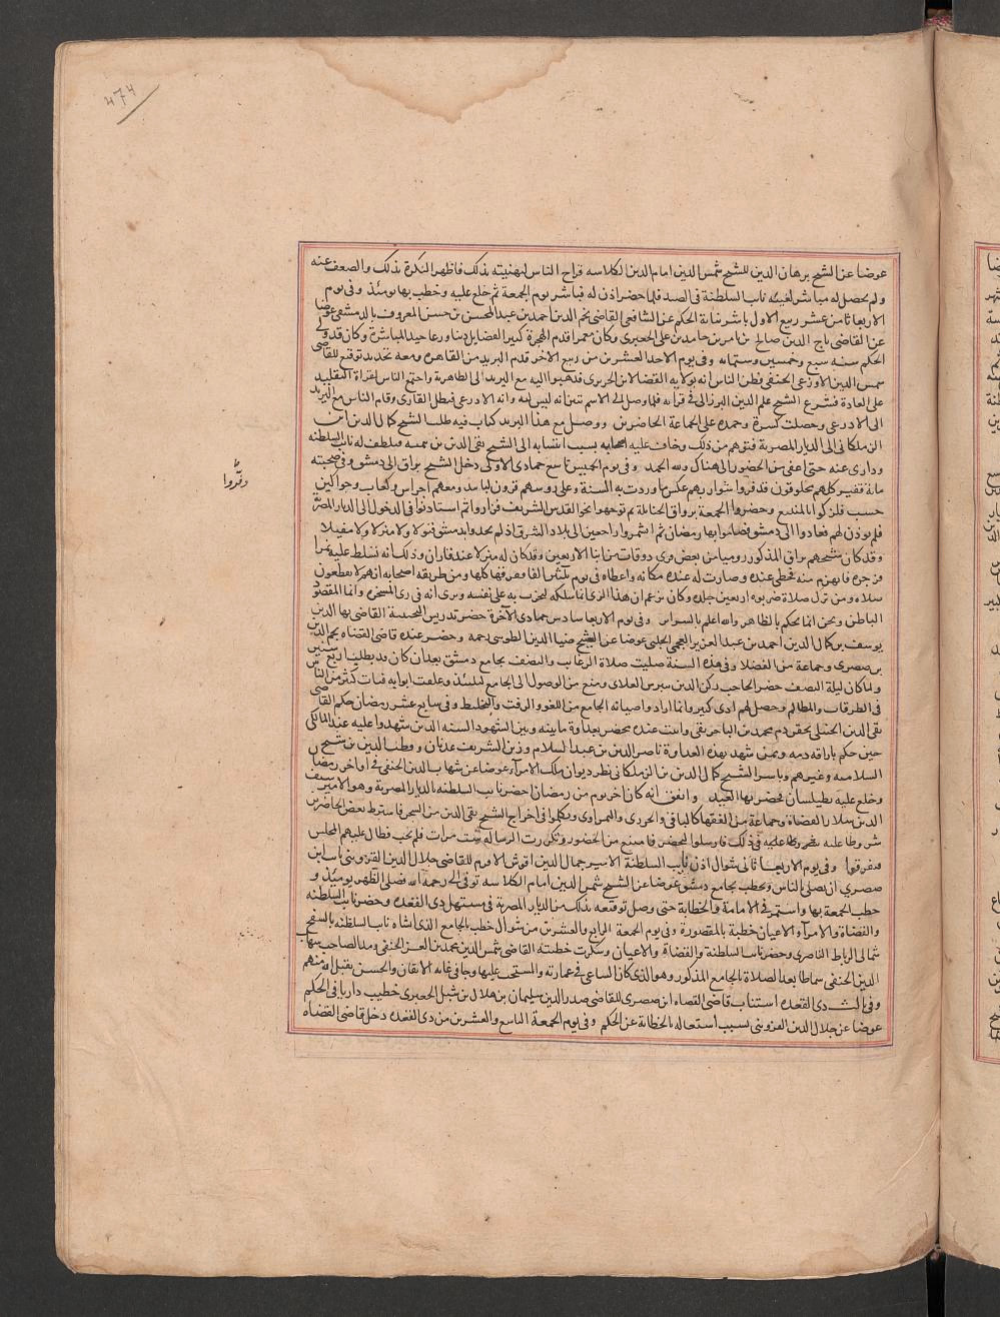 ٤٧٤
عوضا عن الشيخ برهان الدين للشيخ شمس الدين امام الدين الكلاسه فراح الناس لتهنيته بذلك فاظهر التكره بذلك والضعف عنه
ولم يحصل له مباشر لغيبته نايب السلطنة فى الصيد فلما حضر اذن له فباشر يوم الجمعة ثم خلع عليه وخطب بها يومئذ وفى يوم
الاربعا ثامن عشر ربيع الاول باشر نيابة الحكم عن الشافعى القاضى نجم الدين احمد بن عبد المحسن بن حسن المعروف بالدمشقى عوضا
عن القاضى تاج الدين صالح بن تامر بن حامد بن على الجعبرى وكان معمرا قديم الهجرة كثير الفضايل دينا ورعا جيد المباشرة وكان قد ولى
الحكم سنه سبع وخمسين وستمايه وفى يوم الاحد العشرين من ربيع الاخر قدم البريد من القاهره ومعه تجديد توقيع للقاضى
شمس الدين الاذرعى الحنفى فظن الناس انه بولايه القضا لابن الحريرى فذهبوا اليه مع البريد الى الظاهرية واجتمع الناس لقراة التقليد
على العادة فشرع الشيخ علم الدين البرزالى فى قراته فلما وصل الى الاسم تبين انه ليس له وانه الاذرعى فبطل القارى وقام الناس مع البريد
الى الاذرعى وحصلت كسرة وخمده على الجماعة الحاضرين ووصل مع هذا البريد كتاب فيه طلب الشيخ كمال الدين ابن
الزملكانى الى الديار المصرية فتوهم من ذلك وخاف عليه اصحابه بسبب انتسابه الى الشيخ تقى الدين بن تيميه فتلطف له نايب السلطنه
ودارى عنه حتى اعفى من الحضور الى هناك ولله الحمد وفى يوم الخميس تاسع جمادى الاولى دخل الشيخ براق الى دمشق وفى صحبته
ماية فقير كلهم محلوقون قد وفروا شواربهم عكس ما وردت به السنة وعلى روسهم قرون لبابيد ومعهم اجراس وكعاب وجواكين
خشب فنزلوا بالمنيبع وحضروا الجمعة برواق الحنابلة ثم توجهوا نحو القدس الشريف فزاروا ثم استاذنوا فى الدخول الى الديار المصرية
فلم يوذن لهم فعادوا الى دمشق فصاموا بها رمضان ثم انشمروا راجعين الى بلاد الشرق اذ لم يجدوا بدمشق قبولا ولا منزلا ولا مقيلا
وقد كان شيخهم براق المذكور روميا من بعض قرى دوقات من ابنا الاربعين وقد كان له منزلا عند قازان وذلك انه سلط عليه نمرا
فزجره فانهزم منه فحظى عنده وصارت له عنده مكانه واعطاه فى يوم ثلثين الفا ففرقها كلها ومن طريقه اصحابه انهم لا يقطعون
صلاه ومن ترك صلاة ضربوه اربعين جلده وكان يزعم ان هذا الزى انما سلكه ليخرب به على نفسه ويرى انه فى زى المسخره وانما المقصود
الباطن ونحن انما نحكم بالظاهر والله اعلم بالسراير وفى يوم الاربعا سادس جمادى الآخرة حضر تدريس النجيبية القاضى بها الدين
يوسف بن كمال الدين احمد بن عبد العزيز العجمى الحلبى عوضا عن الشيخ ضيا الدين الطوسى رحمه وحضر عنده قاضى القضاه نجم الدين
بن صصرى وجماعة من الفضلا وفى هذه السنة صليت صلاة الرغايب والنصف بجامع دمشق بعد ان كان قد بطلها اربع سنين
ولما كان ليلة النصف حضر الحاجب ركن الدين بيبرس العلاى ومنع من الوصول الى الجامع ليلتئذ وغلقت ابوابه فبات كثير من الناس
فى الطرقات وحصل لهم اذى كثير وانما اراد صيانه الجامع من اللغو والرفث والتخليط وفى سابع عشر رمضان حكم القاضى
تقى الدين الحنبلى بحقن دم محمد بن الباجربقى واثبت عنده محضر بعداوة ما بينه وبين الشهود السته الذين شهدوا عليه عند المالكى
حين حكم باراقه دمه وممن شهد بهذه العداوة ناصر الدين بن عبد السلام وزين الشريف عدنان وقطب الدين بن شيخ
السلاميه وغيرهم وباشر الشيخ كمال الدين بن الزملكانى نظر ديوان ملك الامرآء عوضا عن شهاب الدين الحنفى فى اواخر رمضان
وخلع عليه بطيلسان فحضر بها العيد واتفق انه كان اخر يوم من رمضان احضر نايب السلطنه بالديار المصرية وهو الامير سيف
الدين سلار القضاة وجماعة من الفقها كالباجى والجزرى والنمراوى وتكلموا فى اخراج الشيخ تقى الدين من السجن فاشترط بعض الحاضرين
شروطا عليه فى ذلك فارسلوا ليحضر فامتنع من الحضور وتكررت الرساله ست مرات فلم يجب فطال عليهم المجلس
فتفرقوا وفى يوم الاربعا ثانى شوال اذن نايب السلطنة الامير جمال الدين اقوش الافرم للقاضى جلال الدين القزوينى
ان يصلى بالناس ويخطب بجامع دمشق عوضا عن الشيخ شمس الدين امام الكلاسه توفى الى رحمة الله فصلى الظهر يومئذ و
خطب الجمعة بها واستمر فى الامامة والخطابة حتى وصل توقيعه بذلك من الديار المصرية فى مستهل ذى القعده وحضر نايب السلطنه
والقضاة والامرآء والاعيان خطبة بالمقصورة وفى يوم الجمعة الرابع والعشرين من شوال خطب بالجامع الذى انشاه نايب السلطنه بالسفح
شمالى الرباط الناصرى وحضر نايب السلطنة والقضاة والاعيان وشكرت خطبته القاضى شمس الدين محمد بن العز الحنفى ومد الصاحب شهاب
الدين الحنفى سماطا بعد الصلاة بالجامع المذكور وهو الذى كان الساعى فى عمارته والمستحث عليها وجا فى غايه الاتقان والحسن تقبل الله منهم
وفى ثالث ذى القعده استناب قاضى القضاه ابن صصرى للقاضى صدر الدين سليمان بن هلال بن شبل الجعبرى خطيب داريا فى الحكم
عوضا عن جلال الدين القزوينى بسبب اشتغاله بالخطابة عن الحكم وفى يوم الجمعة التاسع والعشرين من ذى القعده دخل قاضى القضاه
وفروا